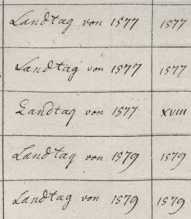 Landtag von 1577 1577
Landtag von 1577 1577
Landtag von 1577 XVIII
Landtag von 1579 1579
Landtag von 1579 1579